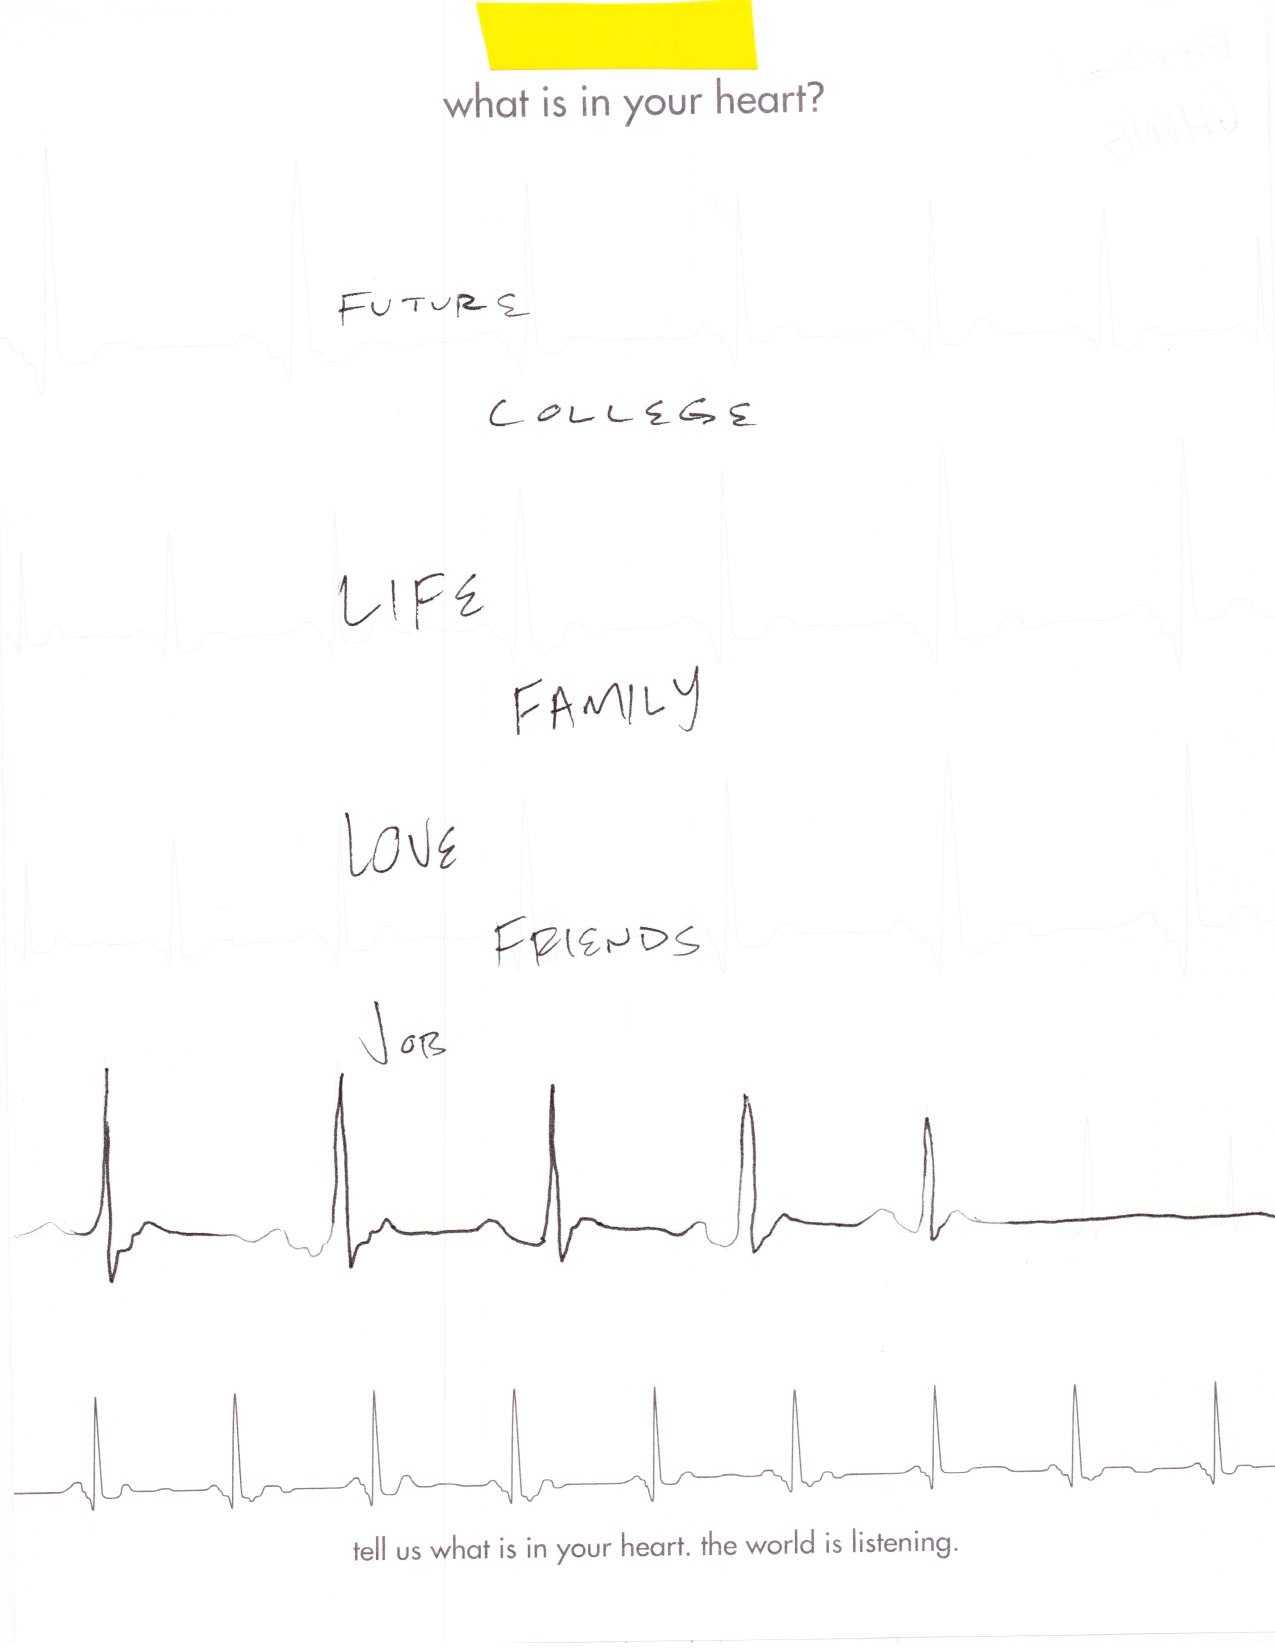 what is in your heart?
FUTURE
COLLEGE
LIFE
FAMILY
LOVE
FRIENDS
JOB
tell us what is in your heart. the world is listening.